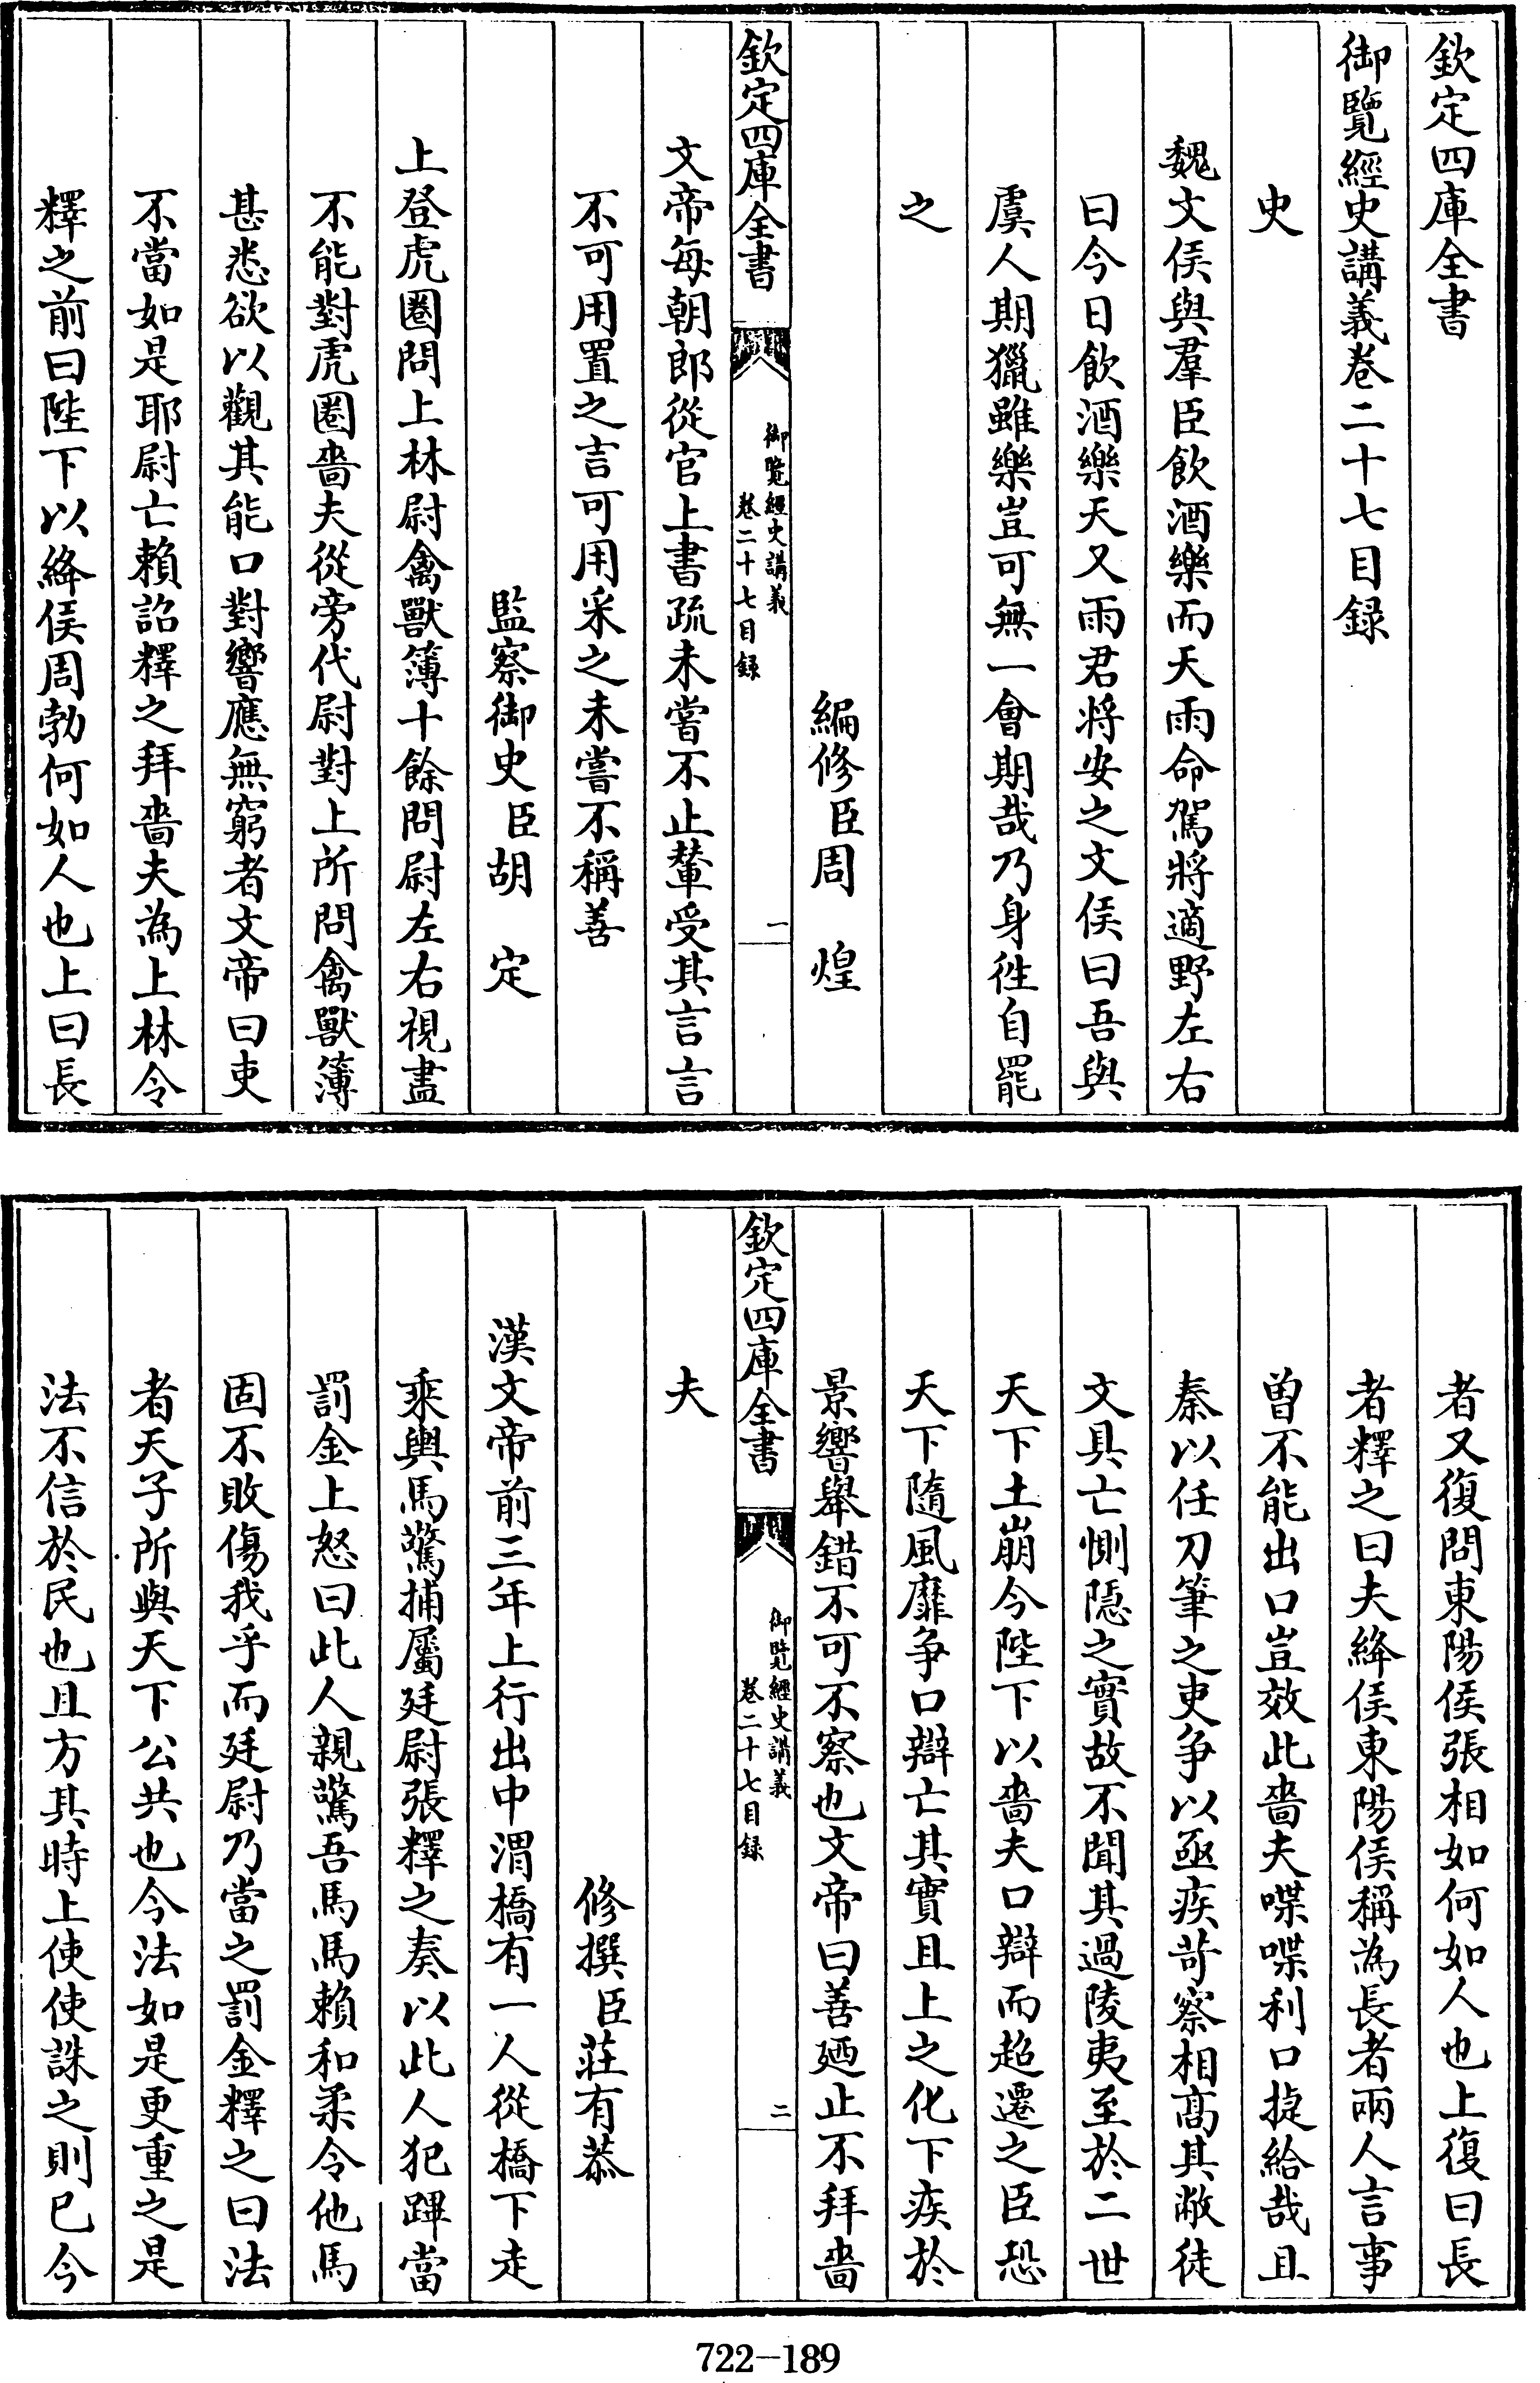 欽定四庫全書
御覽經史講義卷二十七目録
史
魏文侯與羣臣飲酒樂而天雨命駕將適野左右
曰今日飲酒樂天又雨君將安之文侯曰吾與
虞人期獵雖樂豈可無一會期哉乃身徃自罷
之
編修臣周煌
欽定四庫全書
御覽經史講義
卷二十七目録
一
文帝每朝郎從官上書疏未嘗不止輦受其言言
不可用置之言可用采之未嘗不稱善
監察御史臣胡定
上登虎圈問上林尉禽獸簿十餘問尉左右視盡
不能對虎圈嗇夫從旁代尉對上所問禽獸簿
甚悉欲以觀其能口對響應無窮者文帝曰吏
不當如是耶尉亡賴詔釋之拜嗇夫為上林令
釋之前曰陛下以絳侯周勃何如人也上曰長
者又復問東陽侯張相如何如人也上復曰長
者釋之曰夫絳侯東陽侯稱為長者兩人言事
曽不能出口豈效此嗇夫喋喋利口捷給哉且
秦以任刀筆之吏争以亟疾苛察相髙其敝徒
文具亡惻隠之實故不聞其過陵夷至於二世
天下土崩今陛下以嗇夫口辯而超遷之臣恐
天下隨風靡争口辯亡其實且上之化下疾於
景響舉錯不可不察也文帝曰善廼止不拜嗇
欽定四庫全書
御覽經史講義
卷二十七目録
二
夫
修撰臣莊有恭
漢文帝前三年上行出中渭橋有一人從橋下走
乘輿馬驚捕屬廷尉張釋之奏以此人犯蹕當
罰金上怒曰此人親驚吾馬馬賴和柔令他馬
固不敗傷我乎而廷尉乃當之罰金釋之曰法
者天子所與天下公共也今法如是更重之是
法不信於民也且方其時上使使誅之則已今
722-189